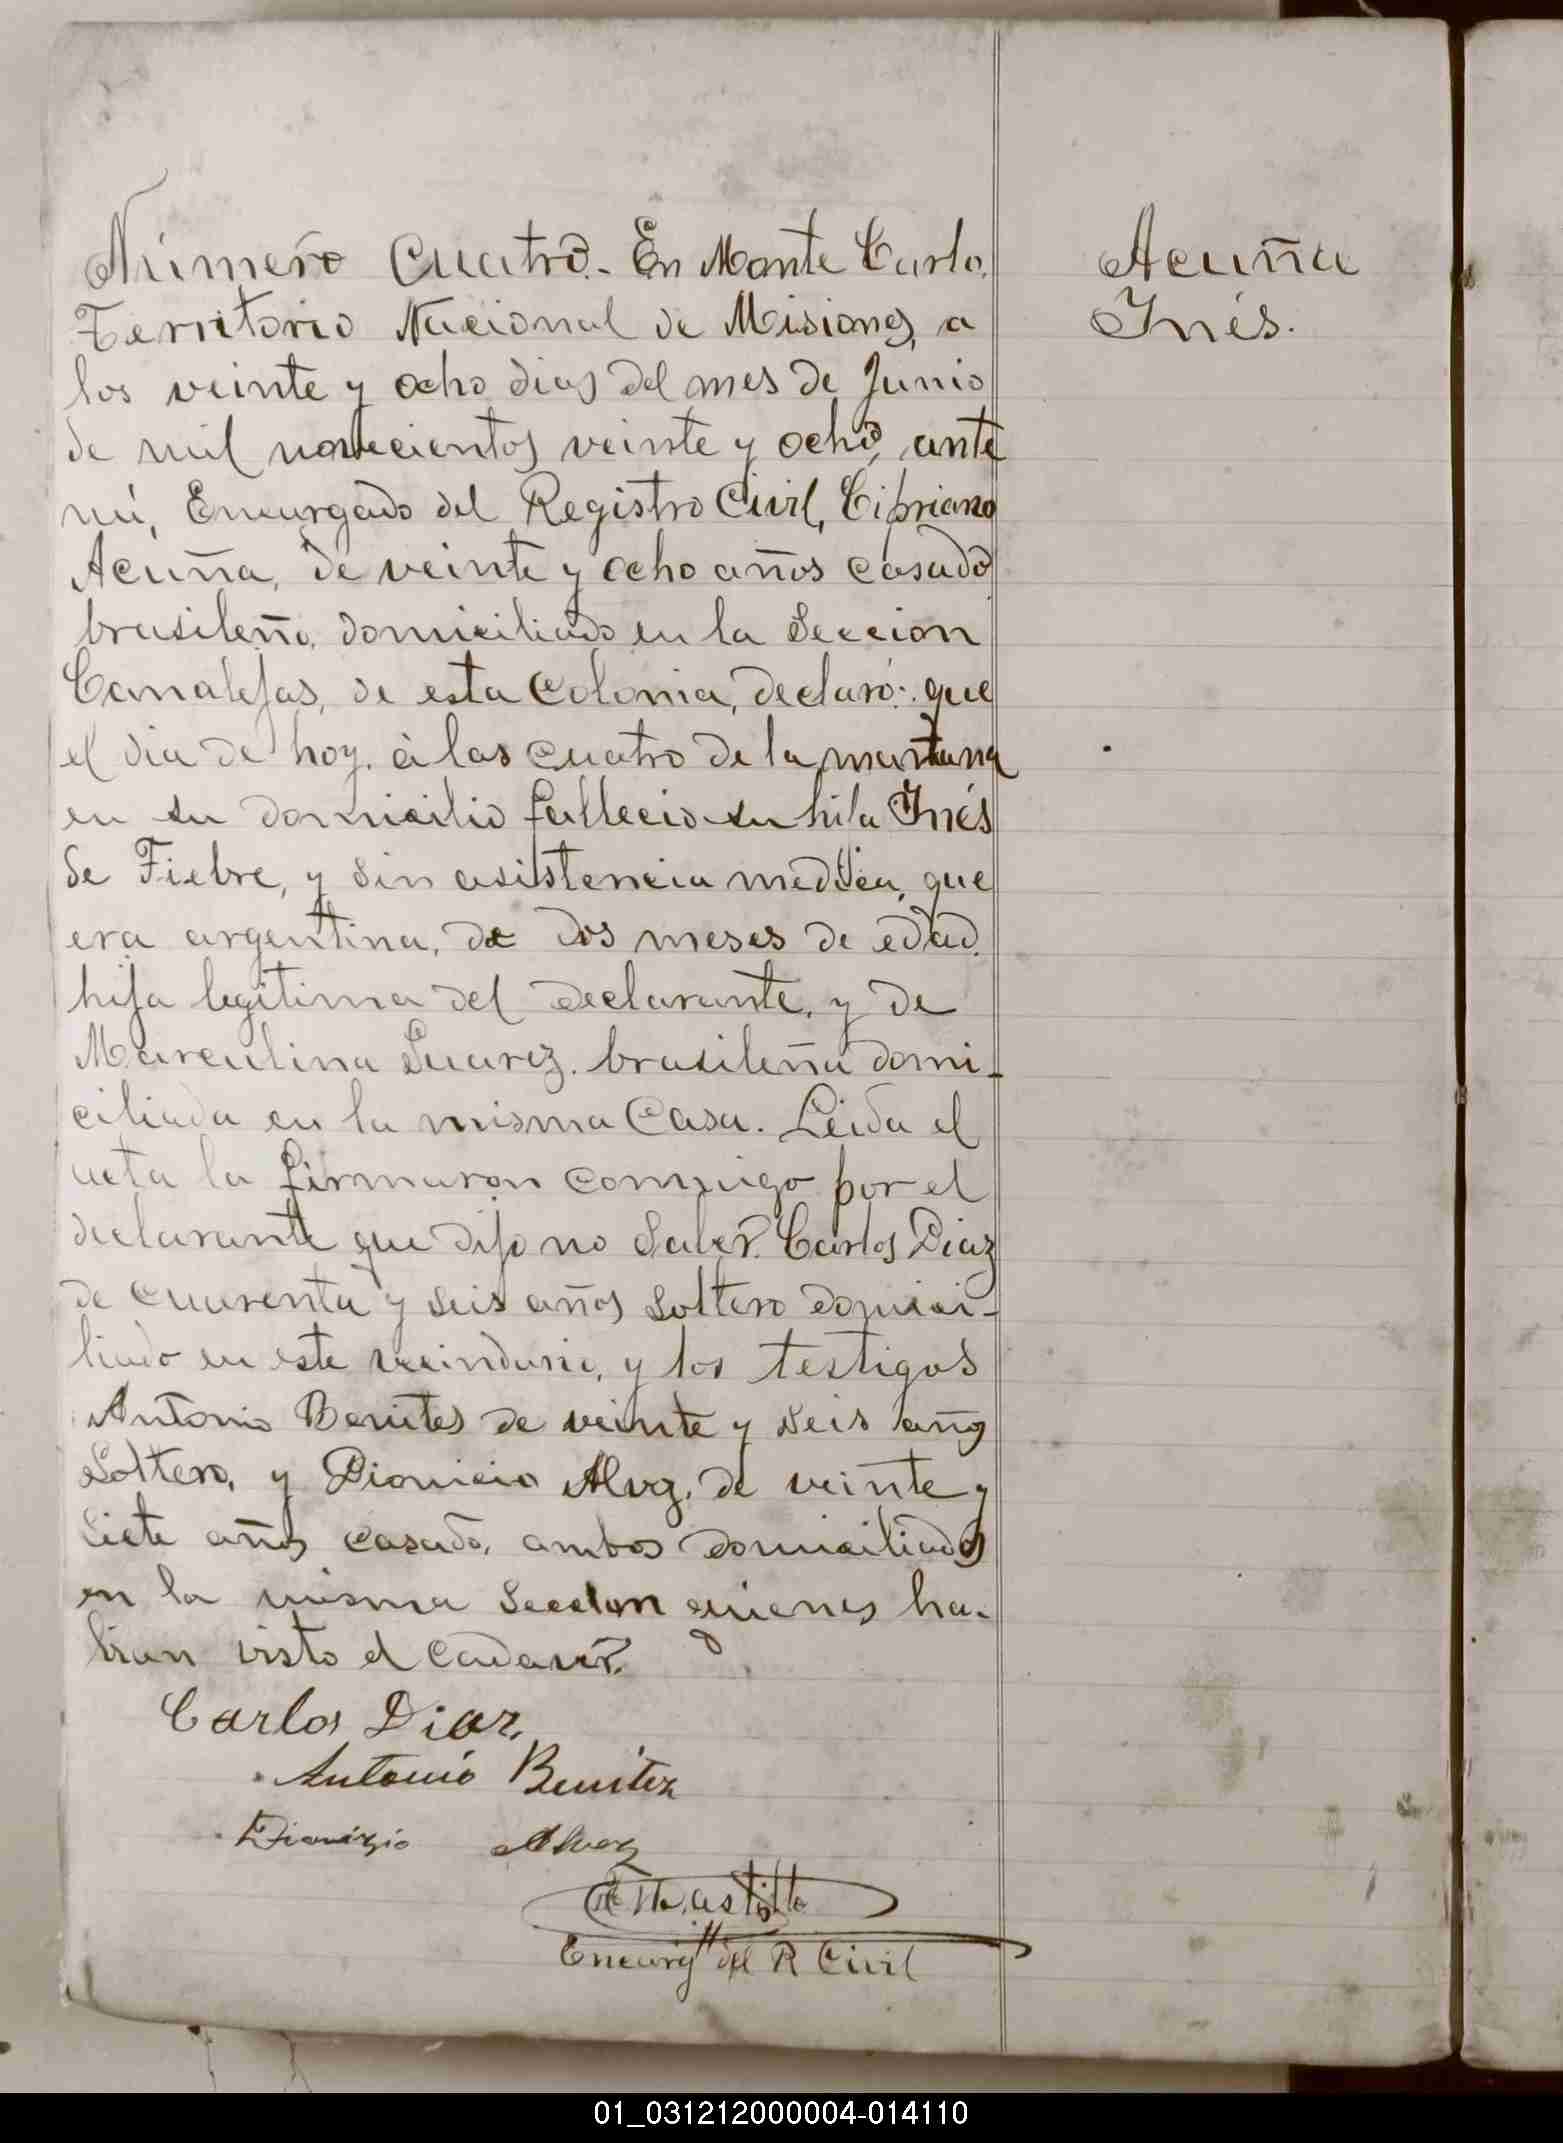 Número Cuatro.- En Monte Carlo,
Territorio Nacional de Misiones, a
los veinte y ocho dias del mes de Junio
de mil novecientos veinte y ocho, ante
mi, Encargado del Registro Civil, Cipriano
Acuña, de veinte y ocho años casado
brasileño, domiciliado en la Seccion
Canalejas, de esta Colonia, declaró: que
el dia de hoy, á las cuatro de la mañana
en su domicilio fallecio su hija Inés
de Fiebre, y sin asistencia medica, que
era argentina, de dos meses de edad.
hija legitima del declarante, y de
Marculina Suarez, brasileña domi-
ciliada en la misma Casa. Leida el
acta la firmaron conmigo por el
declarante que dijo no saber. Carlos Diaz
de cuarenta y seis años soltero domici-
liado en este vecindario, y los testigos
Antonio Benites de veinte y seis años
Soltero, y Dionicio Alvz. de veinte y
siete años casado, ambos domiciliados
en la misma Seccion quienes ha-
bian visto el cadaver.
Carlos Diaz,
Antonio Benitez
Dionizio Alvez
Encarg del R Civil
Acuña
Inés.
01_031212000004-014110